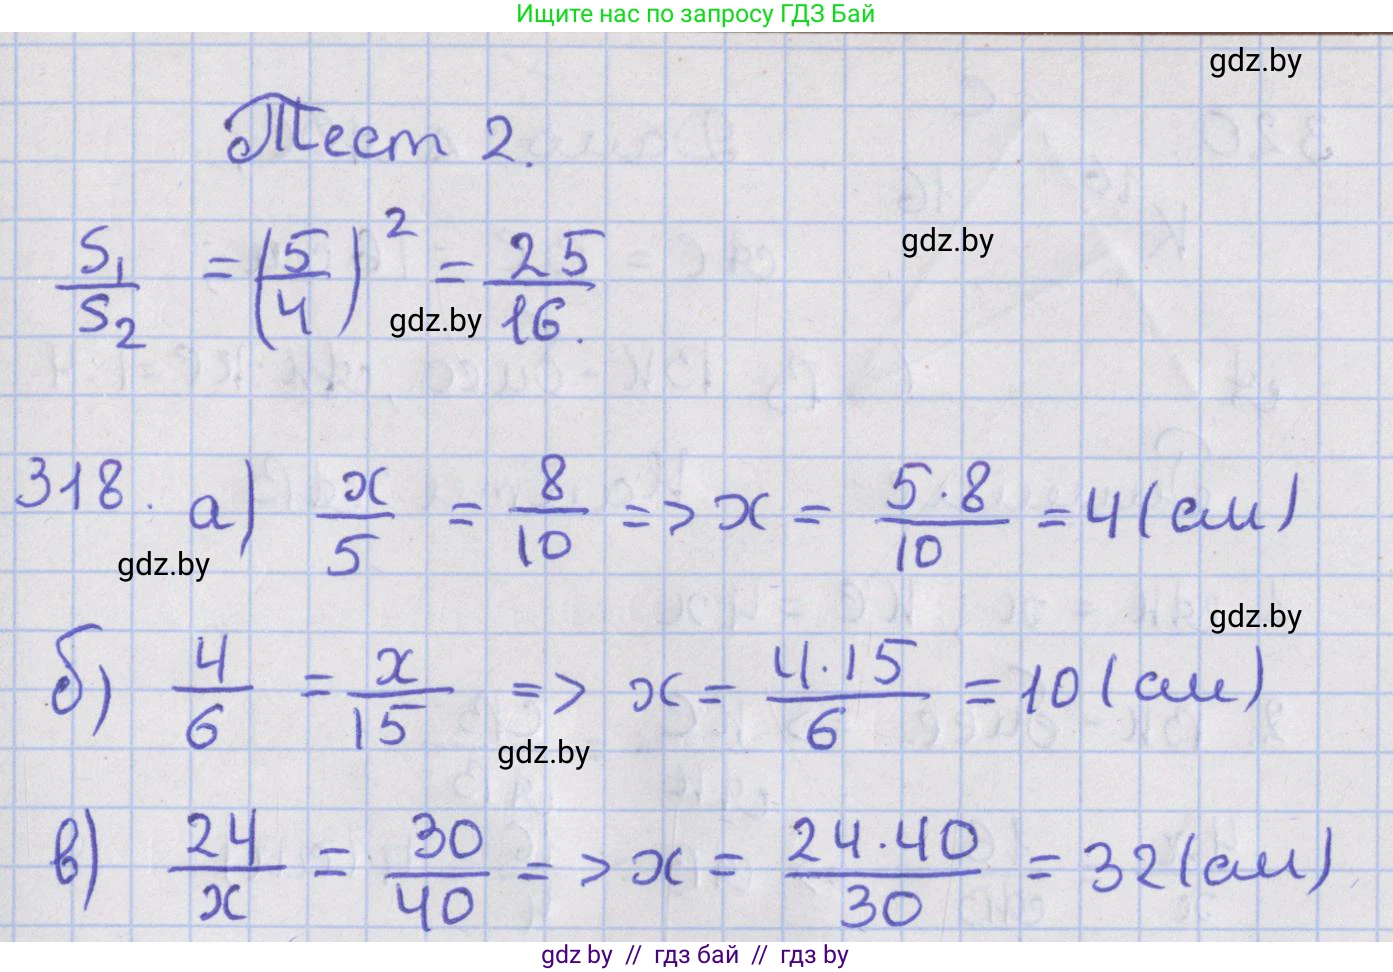 Ищите нас по запросу ГДЗ Бай
gdz.by
Тест 2.
gdz.by
S₁/S₂ = (5/4)² = 25/16.
gdz.by
318. а) x/5 = 8/10 => x = 5·8/10 = 4 (см)
gdz.by
gdz.by
б) 4/6 = x/15 => x = 4·15/6 = 10 (см)
gdz.by
в) 24/x = 30/40 => x = 24·40/30 = 32 (см)
gdz by // гдз бай // гдз by